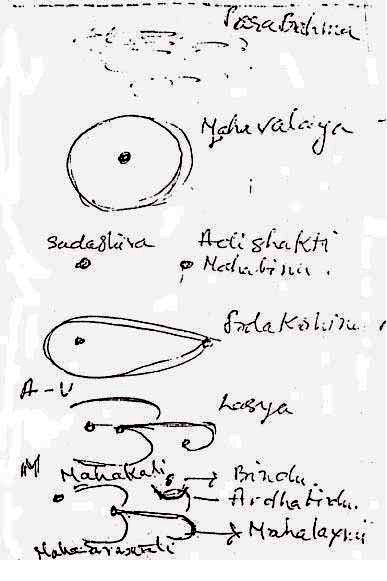 ParaBrhma
Mahavalaya
Sadashiva Adishakti
Mahabindu.
A-U
Lasya
M Mahakali Bindu.
Ardhabindu.
Mahalaxmi
Mahasaraswati